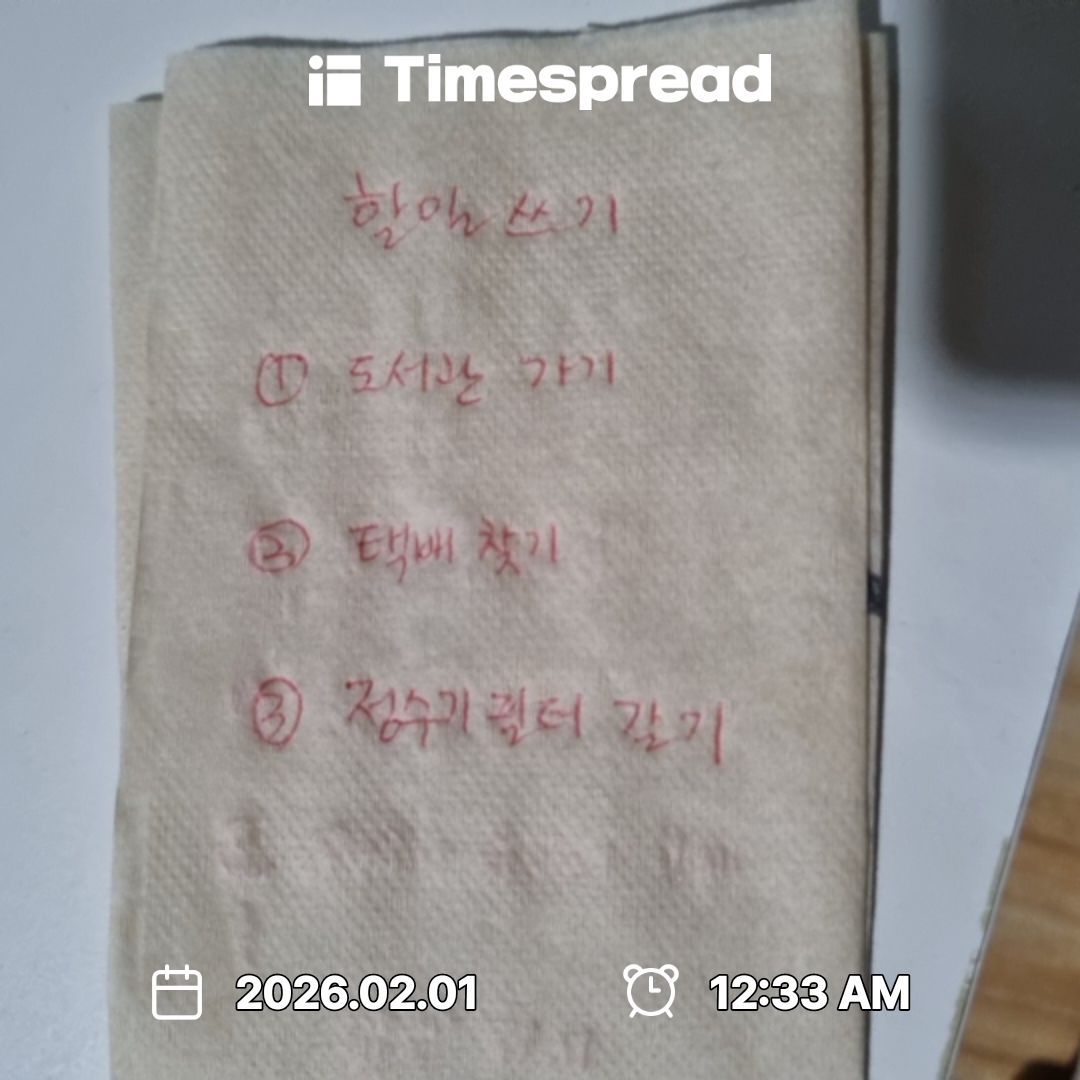 Timespread
할일 쓰기
① 도서관 가기
② 택배 찾기
③ 정수기 필터 갈기
2026.02.01 12:33 AM